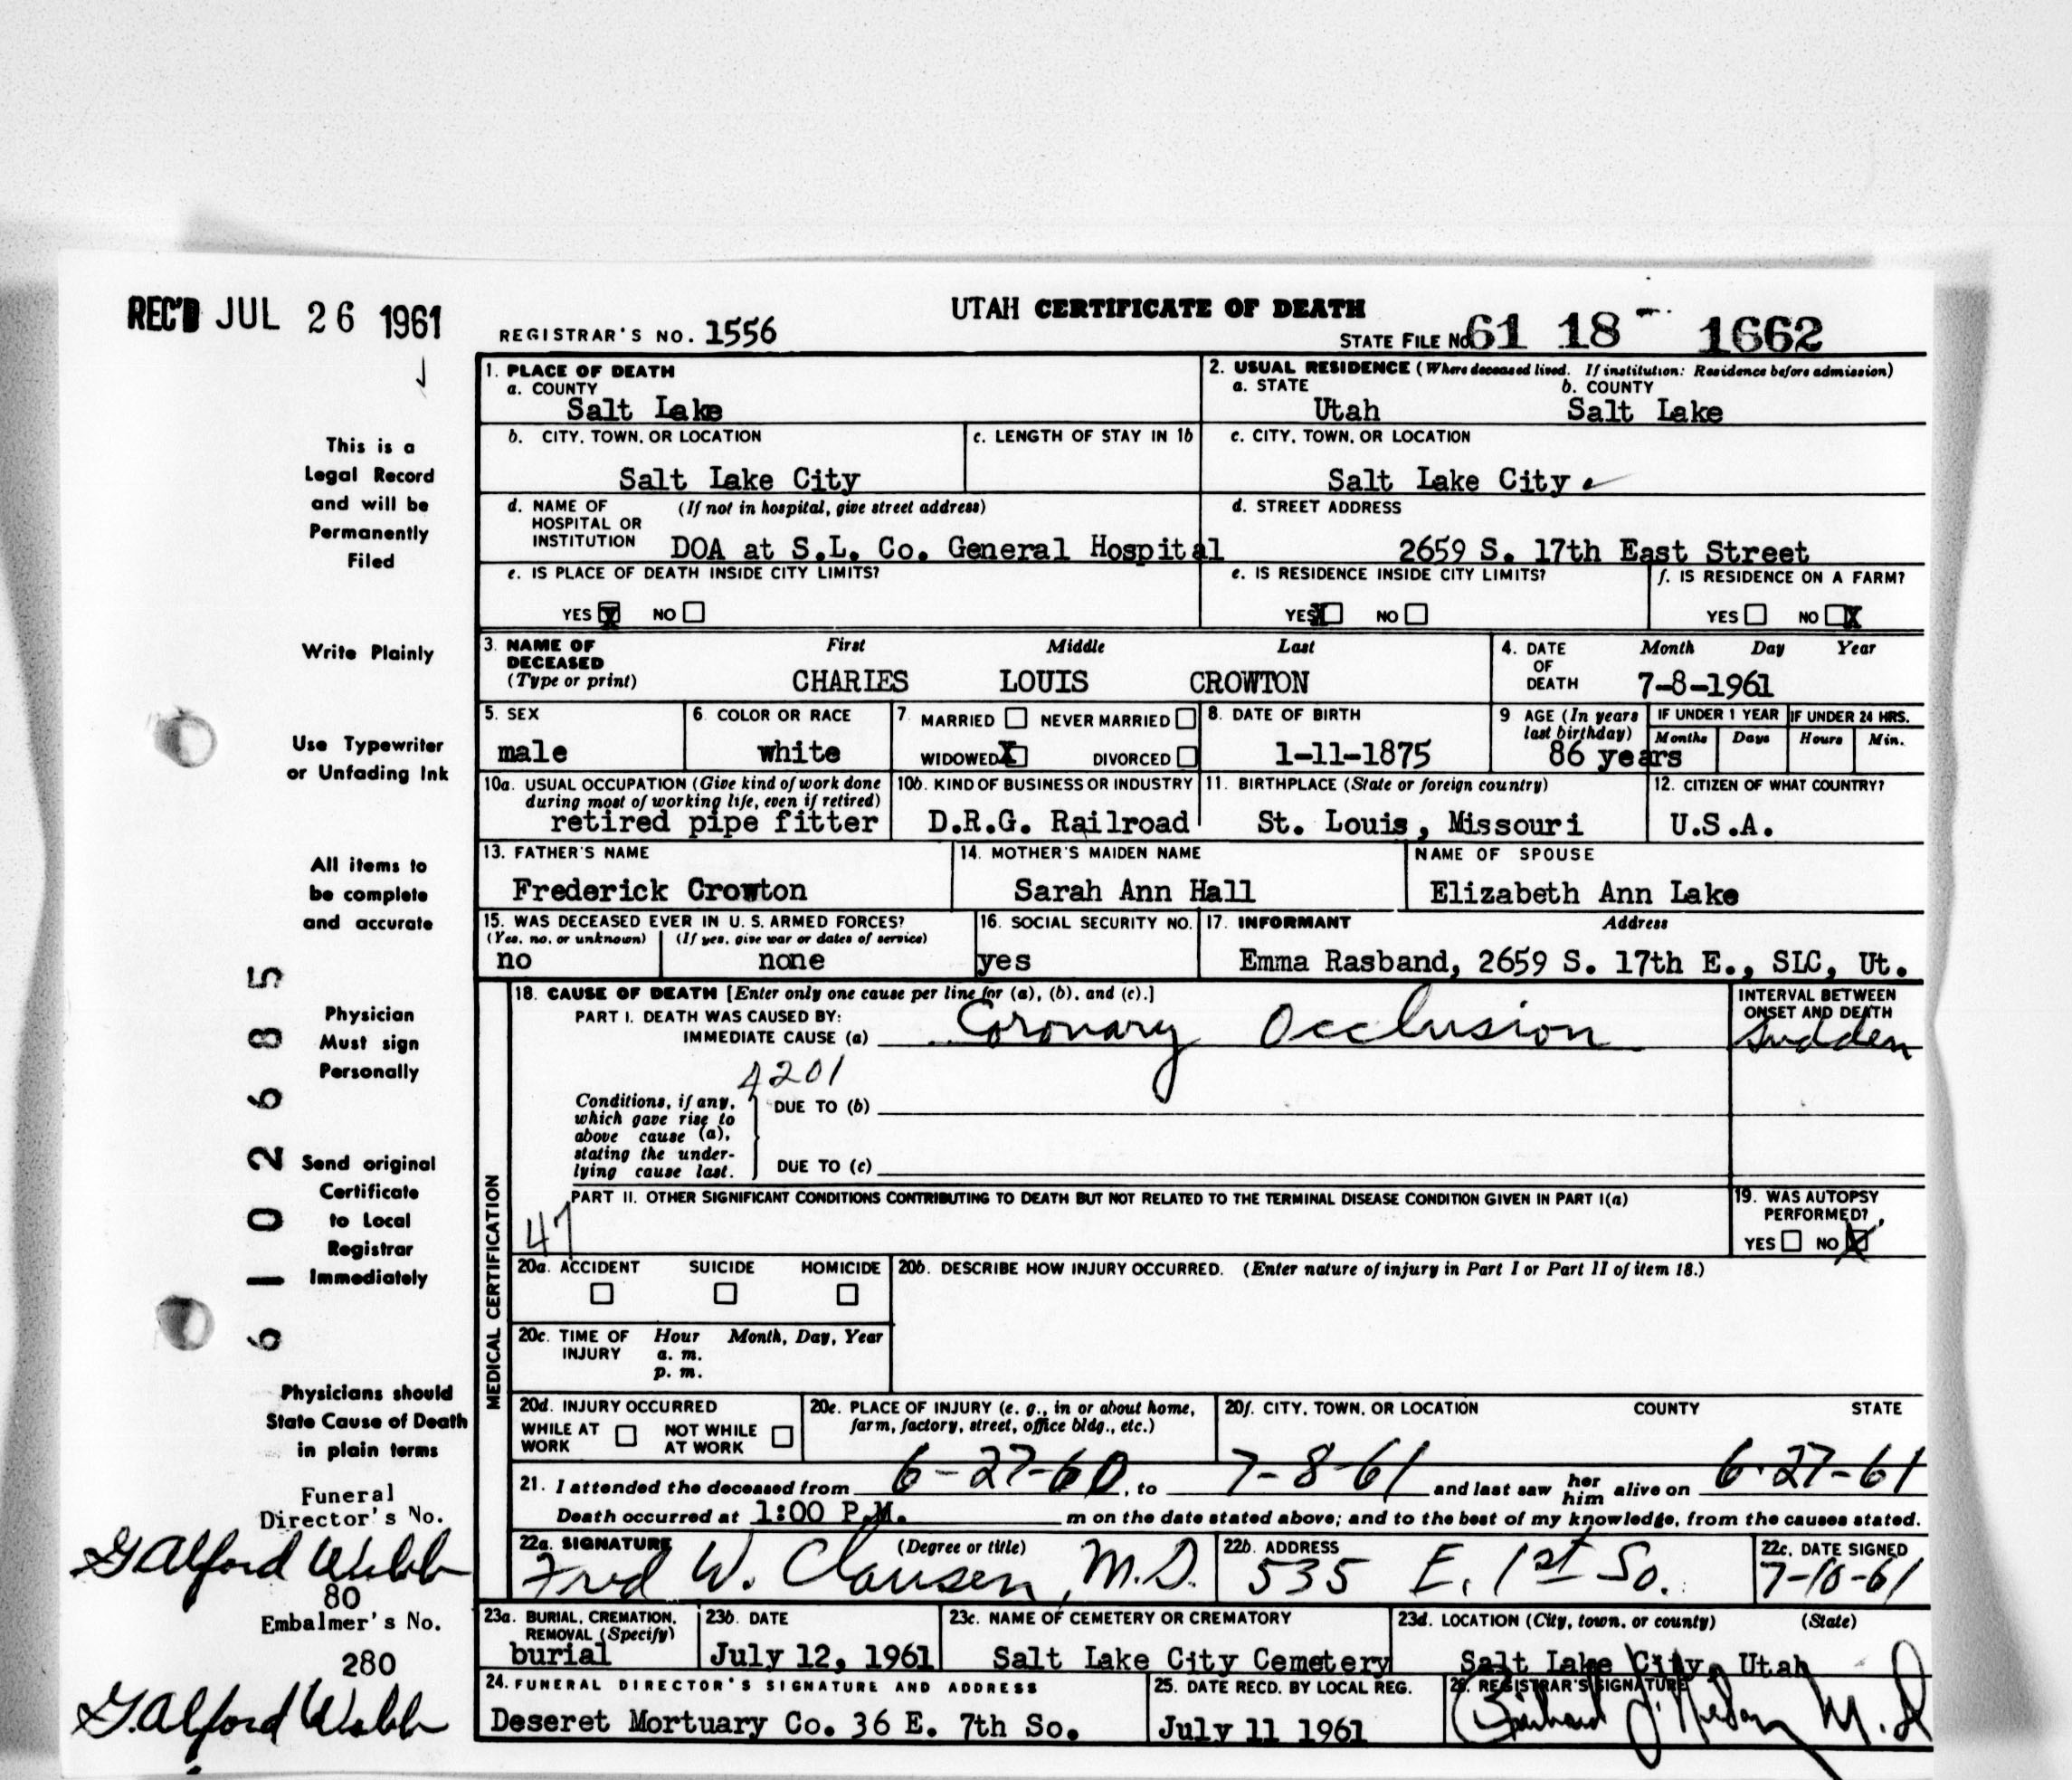 REC'D JUL 26 1961
UTAH CERTIFICATE OF DEATH
REGISTRAR'S NO. 1556
STATE FILE NO. 61 18 1662
1. PLACE OF DEATH
a. COUNTY
Salt Lake
2. USUAL RESIDENCE (Where deceased lived. If institution: Residence before admission)
a. STATE b. COUNTY
Utah Salt Lake
b. CITY, TOWN, OR LOCATION
Salt Lake City
c. LENGTH OF STAY IN 1b
c. CITY, TOWN, OR LOCATION
Salt Lake City
d. NAME OF HOSPITAL OR INSTITUTION (If not in hospital, give street address)
DOA at S.L. Co. General Hospital
d. STREET ADDRESS
2659 S. 17th East Street
e. IS PLACE OF DEATH INSIDE CITY LIMITS?
YES X NO
e. IS RESIDENCE INSIDE CITY LIMITS?
YES X NO
f. IS RESIDENCE ON A FARM?
YES NO X
3. NAME OF DECEASED (Type or print)
First Middle Last
CHARIES LOUIS CROWTON
4. DATE OF DEATH
Month Day Year
7-8-1961
5. SEX
male
6. COLOR OR RACE
white
7. MARRIED NEVER MARRIED
WIDOWED X DIVORCED
8. DATE OF BIRTH
1-11-1875
9 AGE (In years last birthday)
86 years
IF UNDER 1 YEAR
Months Days
IF UNDER 24 HRS.
Hours Min.
10a. USUAL OCCUPATION (Give kind of work done during most of working life, even if retired)
retired pipe fitter
10b. KIND OF BUSINESS OR INDUSTRY
D.R.G. Railroad
11. BIRTHPLACE (State or foreign country)
St. Louis, Missouri
12. CITIZEN OF WHAT COUNTRY?
U.S.A.
13. FATHER'S NAME
Frederick Crowton
14. MOTHER'S MAIDEN NAME
Sarah Ann Hall
NAME OF SPOUSE
Elizabeth Ann Lake
15. WAS DECEASED EVER IN U. S. ARMED FORCES?
(Yes, no, or unknown) (If yes, give war or dates of service)
no none
16. SOCIAL SECURITY NO.
yes
17. INFORMANT Address
Emma Rasband, 2659 S. 17th E., SLC, Ut.
MEDICAL CERTIFICATION
18. CAUSE OF DEATH [Enter only one cause per line for (a), (b), and (c).]
PART I. DEATH WAS CAUSED BY:
IMMEDIATE CAUSE (a) Coronary Occlusion
INTERVAL BETWEEN ONSET AND DEATH
Sudden
4201
Conditions, if any, which gave rise to above cause (a), stating the underlying cause last.
DUE TO (b)
DUE TO (c)
PART II. OTHER SIGNIFICANT CONDITIONS CONTRIBUTING TO DEATH BUT NOT RELATED TO THE TERMINAL DISEASE CONDITION GIVEN IN PART I(a)
47
19. WAS AUTOPSY PERFORMED?
YES NO X
20a. ACCIDENT SUICIDE HOMICIDE
20b. DESCRIBE HOW INJURY OCCURRED. (Enter nature of injury in Part I or Part II of item 18.)
20c. TIME OF INJURY Hour Month, Day, Year
a. m.
p. m.
20d. INJURY OCCURRED
WHILE AT WORK NOT WHILE AT WORK
20e. PLACE OF INJURY (e. g., in or about home, farm, factory, street, office bldg., etc.)
20f. CITY, TOWN, OR LOCATION COUNTY STATE
21. I attended the deceased from 6-27-60, to 7-8-61 and last saw her him alive on 6-27-61
Death occurred at 1:00 P.M. m on the date stated above; and to the best of my knowledge, from the causes stated.
22a. SIGNATURE (Degree or title)
Fred W. Clausen, M.D.
22b. ADDRESS
535 E. 1st So.
22c. DATE SIGNED
7-10-61
23a. BURIAL, CREMATION, REMOVAL (Specify)
burial
23b. DATE
July 12, 1961
23c. NAME OF CEMETERY OR CREMATORY
Salt Lake City Cemetery
23d. LOCATION (City, town, or county) (State)
Salt Lake City, Utah
24. FUNERAL DIRECTOR'S SIGNATURE AND ADDRESS
Deseret Mortuary Co. 36 E. 7th So.
25. DATE RECD. BY LOCAL REG.
July 11 1961
26. REGISTRAR'S SIGNATURE
M.D
This is a
Legal Record
and will be
Permanently
Filed
Write Plainly
Use Typewriter
or Unfading Ink
All items to
be complete
and accurate
Physician
Must sign
Personally
Send original
Certificate
to Local
Registrar
Immediately
Physicians should
State Cause of Death
in plain terms
6102685
Funeral
Director's No.
G Alford Webb
80
Embalmer's No.
280
G. Alford Webb